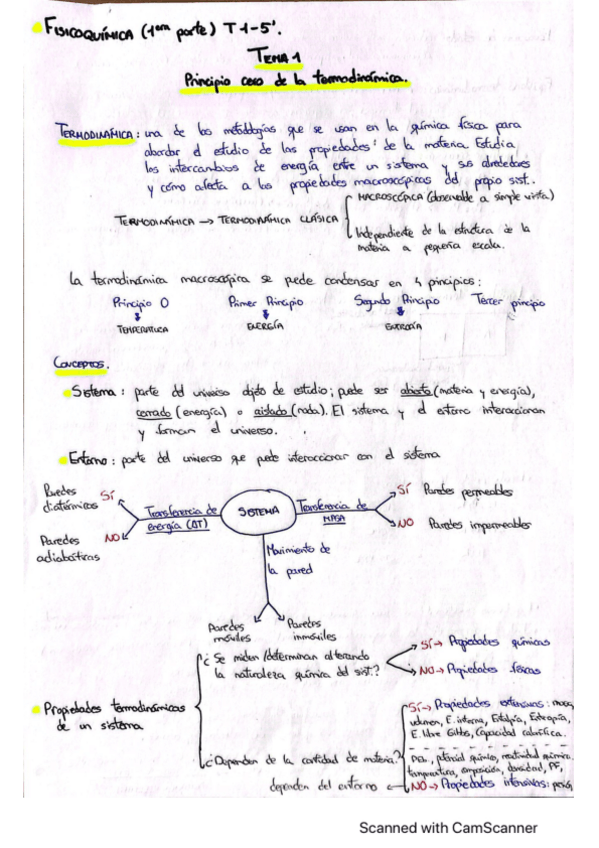 FISICOQUÍMICA (1era parte) T1-5'.
TEMA 1
Principio cero de la termodinámica.
TERMODINÁMICA: una de las metodologías que se usan en la química física para
abordar el estudio de las propiedades de la materia. Estudia
los intercambios de energía entre un sistema y sus alrededores
y cómo afecta a las propiedades macroscópicas del propio sist..
MACROSCÓPICA (observable a simple vista)
TERMODINÁMICA → TERMODINÁMICA CLÁSICA
Independiente de la estructura de la
materia a pequeña escala.
La termodinámica macroscópica se puede condensar en 4 principios:
Principio 0 Primer Principio Segundo Principio Tercer principio
TEMPERATURA ENERGÍA ENTROPÍA
CONCEPTOS.
Sistema: parte del universo objeto de estudio; puede ser abierto (materia y energía),
cerrado (energía) o aislado (nada). El sistema y el entorno interaccionan
y forman el universo.
Entorno: parte del universo que puede interaccionar con el sistema
Paredes
diatérmicas
SÍ
Transferencia de
energía (ΔT)
SISTEMA
Transferencia de
MASA
SÍ Paredes permeables
Paredes
adiabáticas
NO
NO Paredes impermeables
Movimiento de
la pared
Paredes
móviles
Paredes
inmóviles
¿Se miden/determinan alterando
la naturaleza química del sist.?
SÍ → Propiedades químicas
NO → Propiedades físicas
Propiedades termodinámicas
de un sistema
SÍ → Propiedades extensivas: masa,
volumen, E. interna, Entalpía, Entropía,
E. libre Gibbs, Capacidad calorífica.
¿Dependen de la cantidad de materia?
potencial químico, reactividad química
temperatura, composición, densidad, PF,
dependen del entorno ← NO → Propiedades intensivas:
Scanned with CamScanner